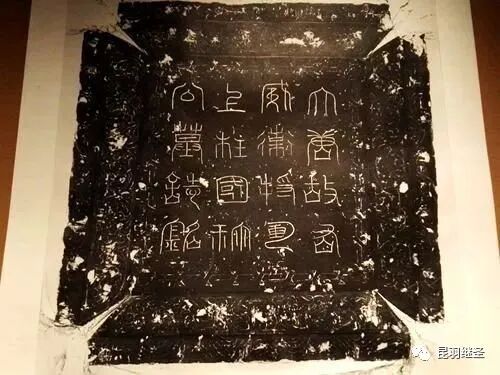 大唐故右
威衛將軍
上柱國祢
公墓誌銘
昆羽继圣